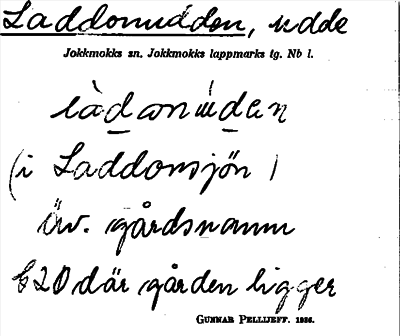 Laddonudden, udde
Jokkmokks sn. Jokkmokks lappmarks tg. Nb l.
làdonúdεn
(i Laddonsjön)
äv. gårdsnamn
620 där gården ligger
GUNNAR PELLIJEFF. 1936.